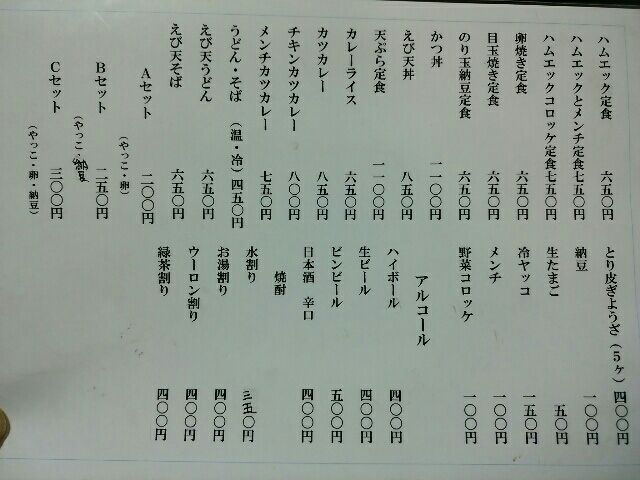 ハムエック定食 六五〇円
ハムエックとメンチ定食七五〇円
ハムエックコロッケ定食七五〇円
卵焼き定食 六五〇円
目玉焼き定食 六五〇円
のり玉納豆定食 六五〇円
かつ丼 一一〇〇円
えび天丼 八五〇円
天ぷら定食 一一〇〇円
カレーライス 六五〇円
カツカレー 八五〇円
チキンカツカレー 八〇〇円
メンチカツカレー 七五〇円
うどん・そば (温・冷) 四五〇円
えび天うどん 六五〇円
えび天そば 六五〇円
Aセット 二〇〇円
(やっこ・卵)
Bセット 二五〇円
(やっこ・納豆)
Cセット 三〇〇円
(やっこ・卵・納豆)
とり皮ぎようざ(5ヶ) 四〇〇円
納豆 一〇〇円
生たまご 五〇円
冷ヤッコ 一五〇円
メンチ 一〇〇円
野菜コロッケ 一〇〇円
アルコール
ハイボール 四〇〇円
生ビール 四〇〇円
ビンビール 五〇〇円
日本酒 辛口 四〇〇円
焼酎
水割り 三五〇円
お湯割り 四〇〇円
ウーロン割り 四〇〇円
緑茶割り 四〇〇円